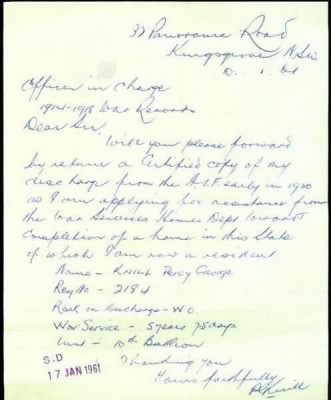 37 Panorama Road
Kingsgrove N.S.W.
Officer in Charge
1914-1918 War Records
Dear Sir,
Will you please forward
by return a Certified copy of my
discharge from the A.I.F. early in 1920
as I am applying for assistance from
the War Services Homes Dept toward
Completion of a home in this State
of which I am now a resident
Name - Knill Percy George
Reg No - 2184
Rank on Discharge - W.O.
War Service - 5 years 75 days
Unit - 10th Battalion
Thanking you
Yours faithfully
PG Knill
S.D
17 JAN 1961